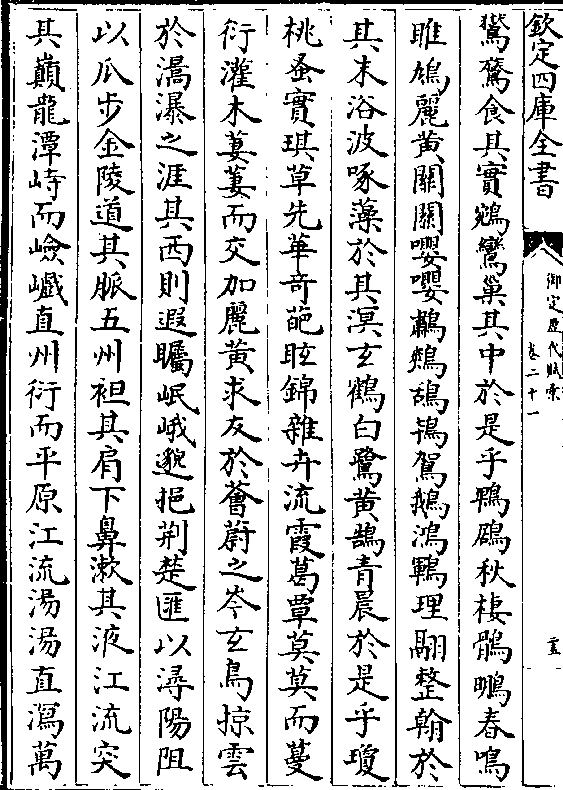 欽定四庫全書
御定歷代賦彙
卷二十一
鷟食其實鵷鸞巢其中於是乎鴨鷗秋棲鶻鵰春鳴
雎鳩麗黄關關嚶嚶鷫鷞鴰鴇鴐鵝鴻鶤理翮整翰於
其末浴波啄藻於其溟玄鶴白鷺黄鵠青晨於是乎瓊
桃蚤實琪草先華奇葩眩錦雜卉流霞葛覃莫莫而蔓
衍灌木萋萋而交加麗黄求友於薈蔚之岑玄鳥掠雲
於濤瀑之涯其西則遐矚岷峨邈挹荆楚匯以潯陽阻
以瓜步金陵道其脈五州袒其肩下鼻漱其液江流突
其巔龍潭峙而嶮巇直州衍而平原江流湯湯直瀉萬